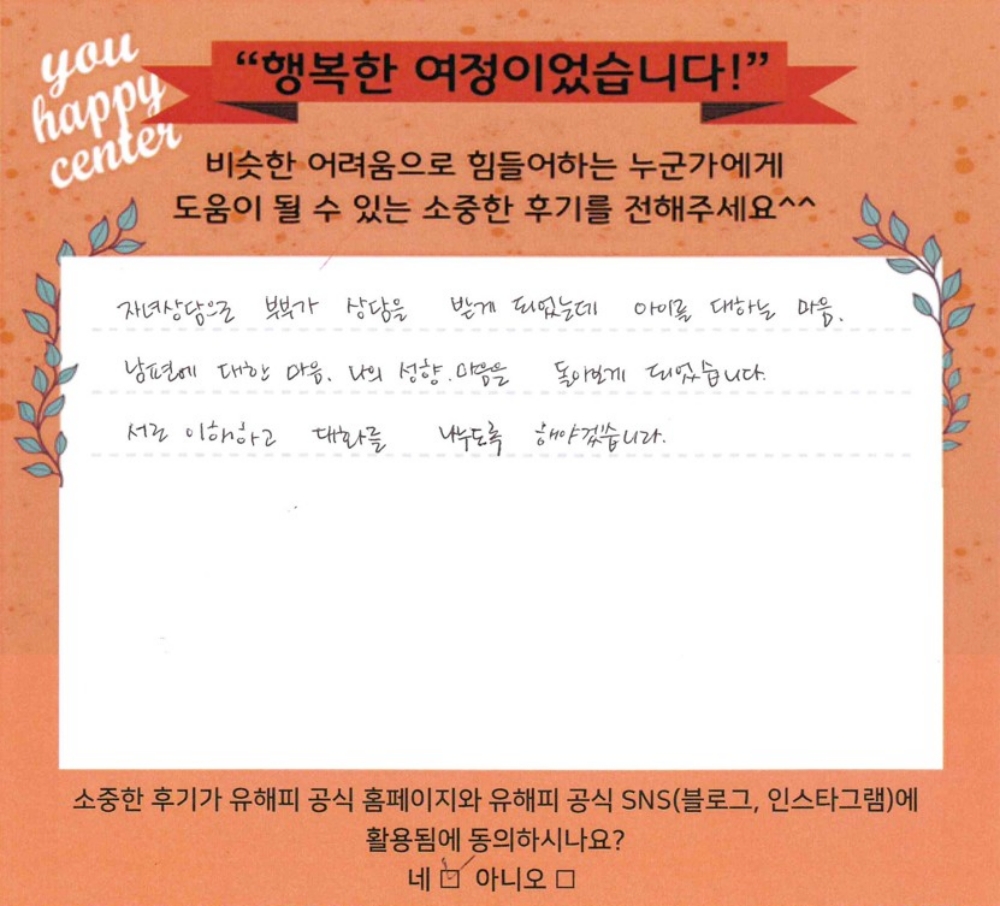 you
happy
center
“행복한 여정이었습니다!”
비슷한 어려움으로 힘들어하는 누군가에게
도움이 될 수 있는 소중한 후기를 전해주세요^^
자녀상담으로 부부가 상담을 받게 되었는데 아이를 대하는 마음,
남편에 대한 마음, 나의 성향, 마음을 돌아보게 되었습니다.
서로 이해하고 대화를 나누도록 해야겠습니다.
소중한 후기가 유해피 공식 홈페이지와 유해피 공식 SNS(블로그, 인스타그램)에
활용됨에 동의하시나요?
네 ☑ 아니오 □